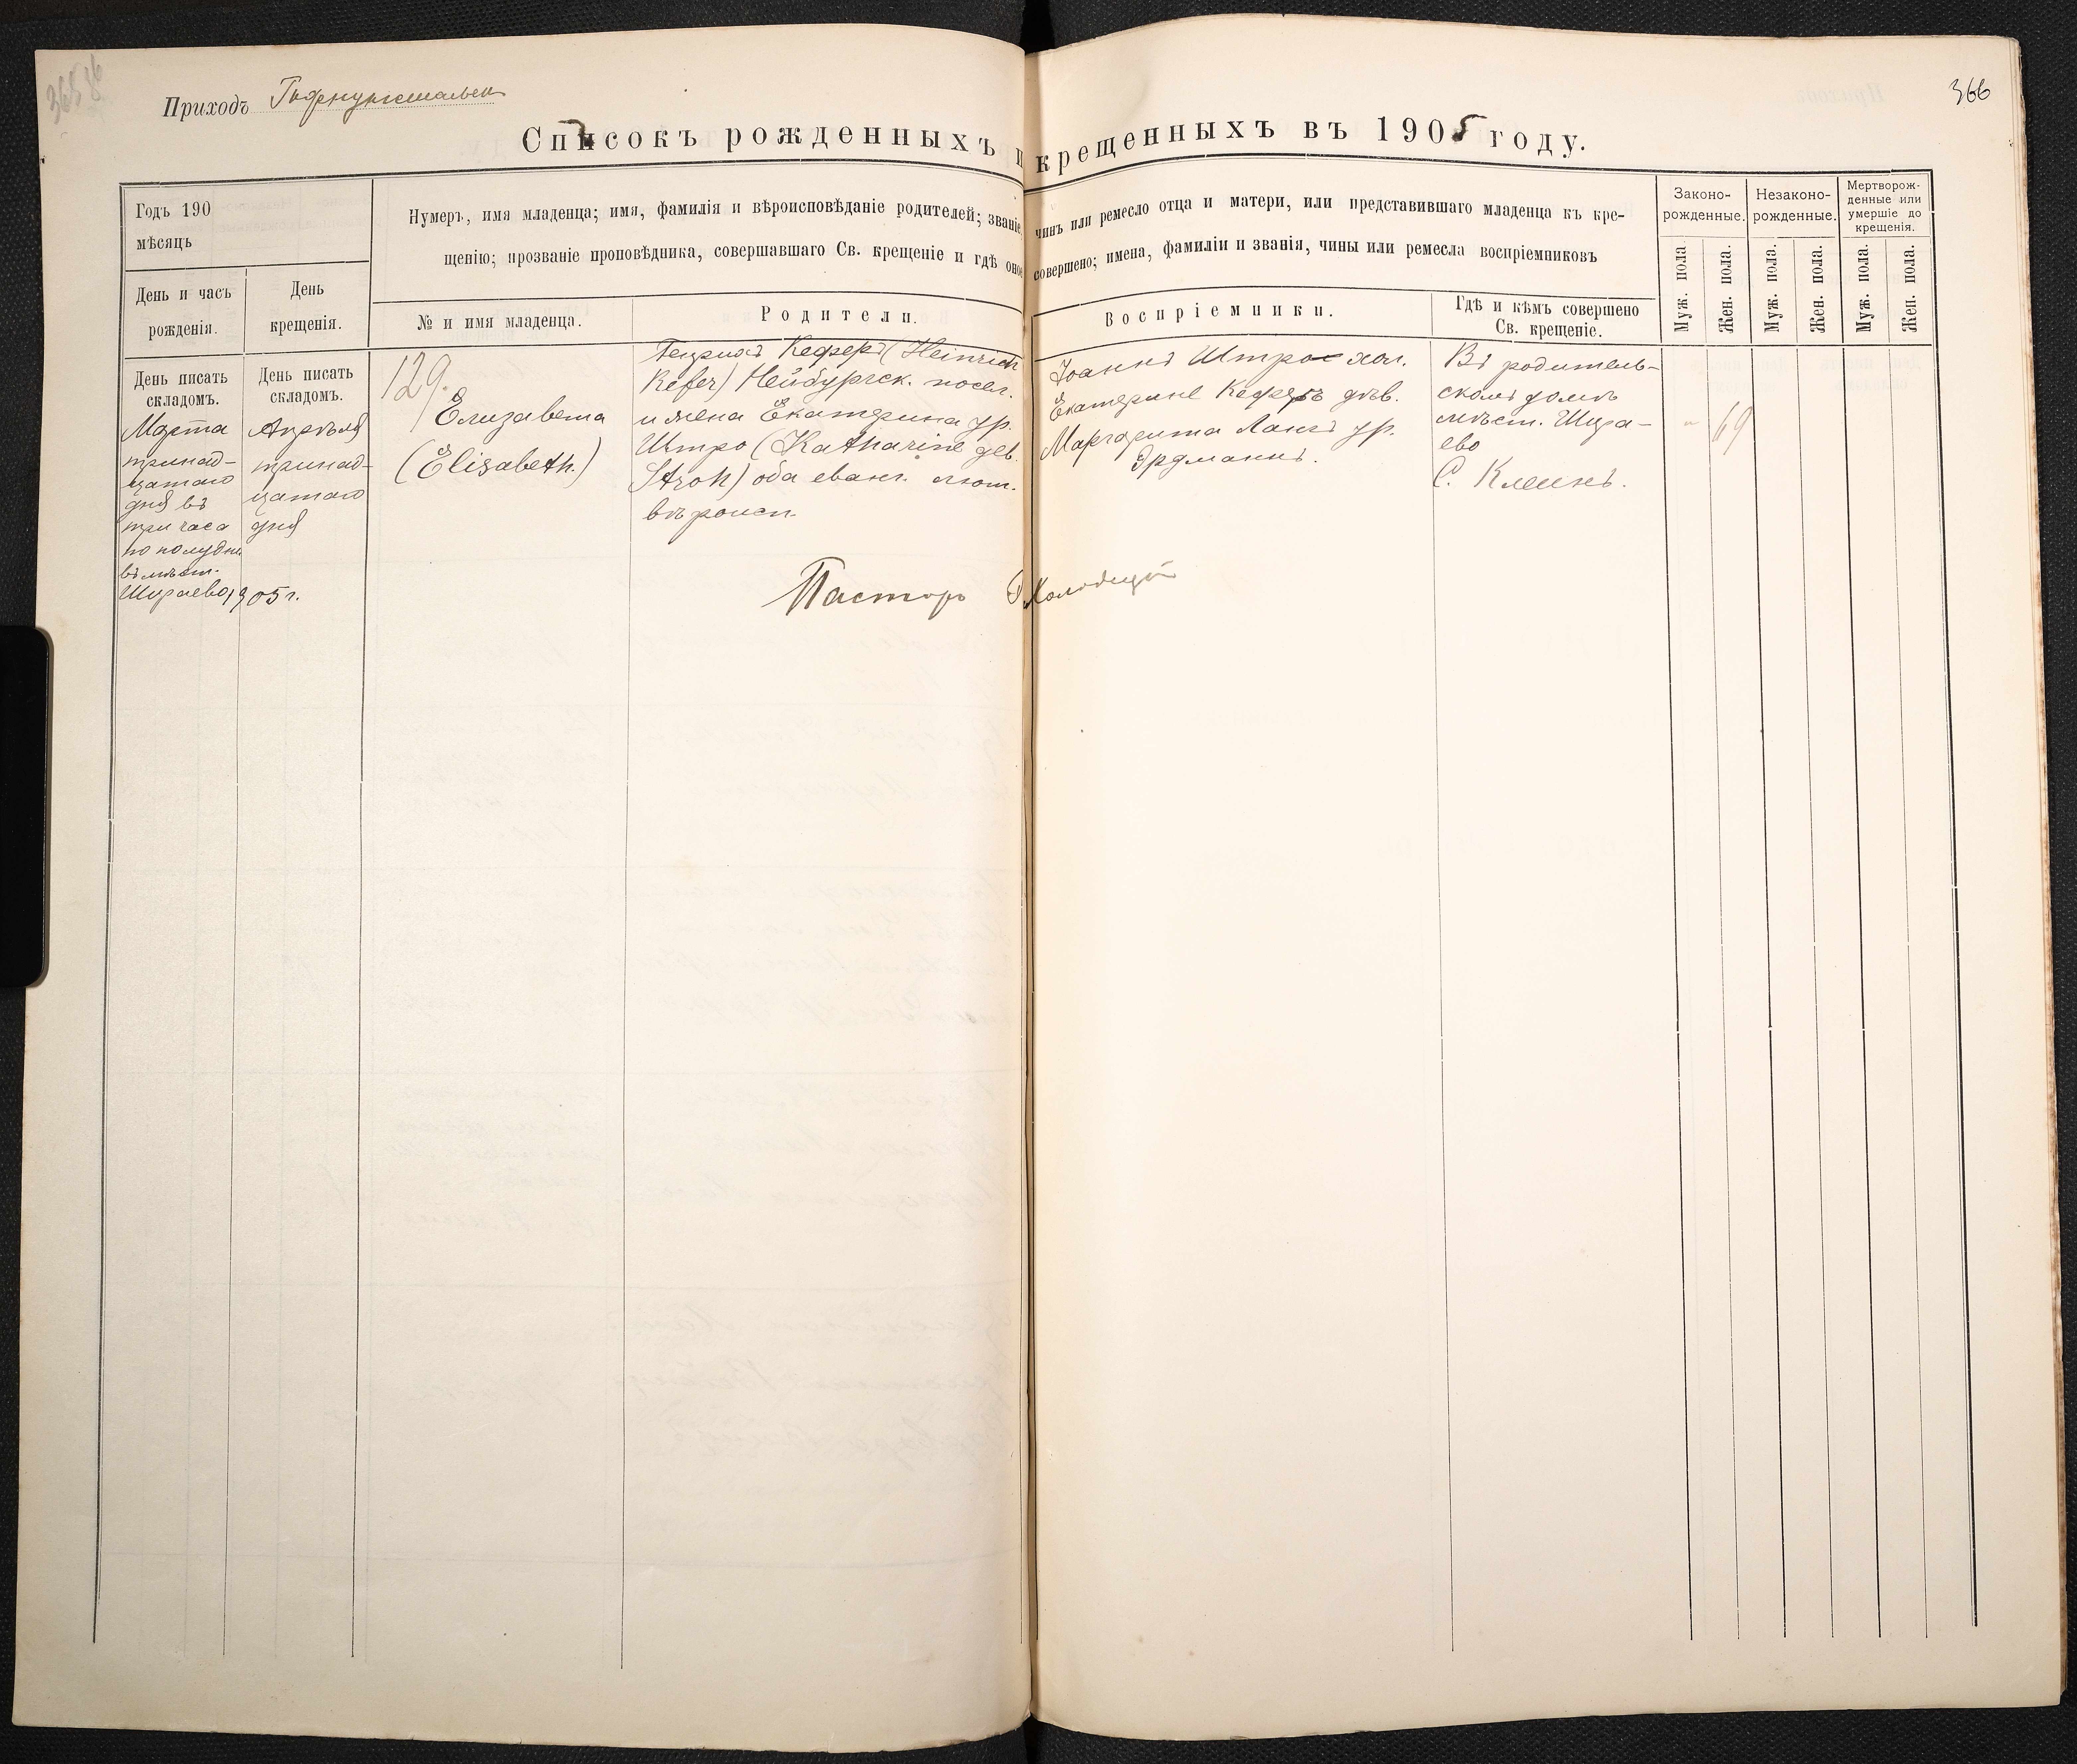 366
Приходъ Гофнунгстальск
Списокъ рожденныхъ и крещенныхъ въ 1905 году.
Годъ 190
мѣсяцъ
Нумеръ, имя младенца; имя, фамилія и вѣроисповѣданіе родителей; званіе, чинъ или ремесло отца и матери, или представившаго младенца къ кре-
щенію; прозваніе проповѣдника, совершавшаго Св. крещеніе и гдѣ оное совершено; имена, фамиліи и званія, чины или ремесла воспріемниковъ
Законо-
рожденные.
Незаконо-
рожденные.
Мертворож-
денные или
умершіе до
крещенія.
День и часъ
рожденія.
День
крещенія.
№ и имя младенца.
Родители.
Воспріемники.
Гдѣ и кѣмъ совершено
Св. крещеніе.
Муж. пола
Жен. пола.
Муж. пола.
Жен. пола.
Муж. пола.
Жен. пола.
День писать
складомъ.
Марта
тринад-
цатаго
дня въ
три часа
по полудни
въ мѣст.
Шираево 1905 г.
День писать
складомъ.
Апрѣля
тринад-
цатаго
дня
129.
Елизавета
(Elisabeth.)
Генрихъ Кеферъ (Heinrich
Kefer) Нейбургск. посел.
и жена Екатерина ур.
Штро (Katharine дѣв.
Stroh) оба еванг. лют.
вѣроисп.
Іоаннъ Штро хол.
Екатерине Кеферъ дѣв.
Маргарита Лангъ ур.
Эрдманнъ.
Въ родитель-
скомъ домѣ
мѣст. Шира-
ево
С. Клеинъ.
" 69
Пасторъ